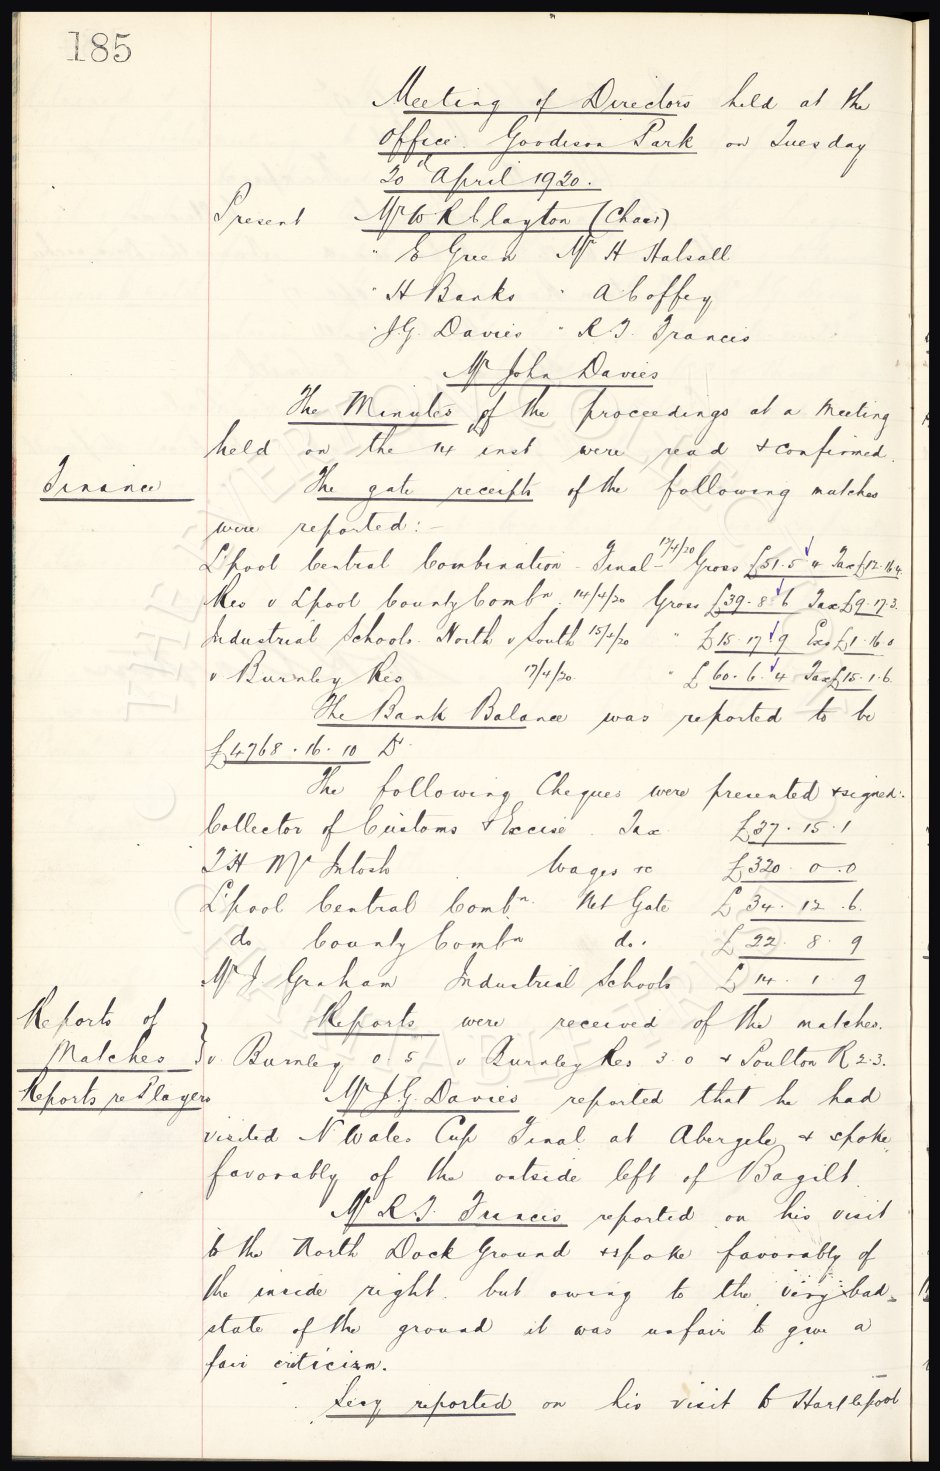 185
Meeting of Directors held at the
Office. Goodison Park on Tuesday
20th April 1920.
Present Mr W R Clayton (Chair)
" E Green Mr H Halsall
" H Banks " A Coffey
" J.G. Davies " R T. Francis
Mr John Davies
The Minutes of the proceedings at a Meeting
held on the 14th inst were read & confirmed.
Finance The gate receipts of the following matches
were reported:-
L'pool Central Combination - Final - 17/4/20 Gross £51.5.4 Tax £12.16.4.
Res v Lpool County Combn. 14/4/20 Gross £39.8.6 Tax £9.17.3.
Industrial Schools. North v South 15/4/20 " £15.17.9 Exs £1.16.0
v Burnley Res 17/4/20 " £60.6.4 Tax £15.1.6.
The Bank Balance was reported to be
£4768.16.10 Dr.
The following Cheques were presented & signed:-
Collector of Customs & Excise. Tax £37.15.1
T H McIntosh Wages &c £320.0.0
L'pool Central Combn. Net Gate £34.12.6.
do County Combn do. £22.8.9
Mr J Graham Industrial Schools £14.1.9
Reports of Matches } Reports were received of the matches.
v. Burnley 0.5 v Burnley Res 3.0 & Poulton R 2.3.
Reports re Players Mr J.G. Davies reported that he had
visited N Wales Cup Final at Abergele & spoke
favorably of the outside left of Bagilt.
Mr R.T. Francis reported on his visit
to the North Dock Ground & spoke favorably of
the inside right. but owing to the very bad
state of the ground it was unfair to give a
fair criticism.
Secy reported on his visit to Hartlepool